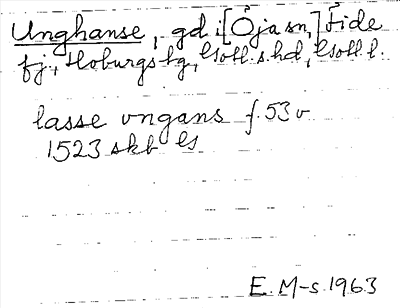 Unghanse, gd i [Öja sn,] Fide
fj., Hoburgs tg, Gotl. s. hd, Gotl. l.
lasse vngans f. 53 v
1523 skb Gs
E. M-s. 1963